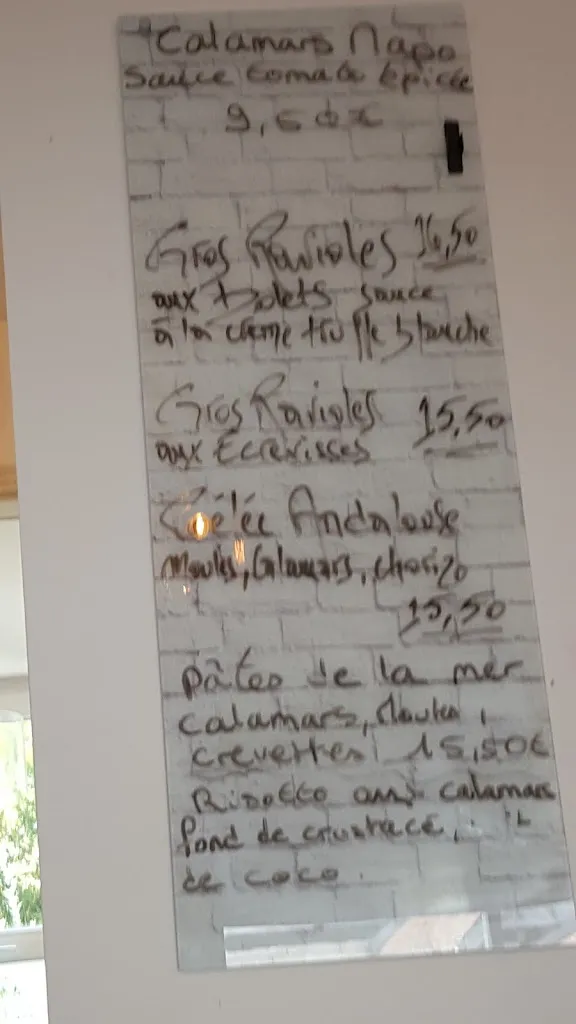 Calamars Napo
Sauce tomate épicée
Gros Ravioles 16,50
aux bolets sauce
à la crème truffe blanche
Gros Ravioles 15,50
aux Ecrevisses
Andalouse
Moules, Calamars, chorizo
15,50
pâtes de la mer
calamars,
crevettes 15,50€
Risotto aux calamars
fond de crustacé,
de coco.